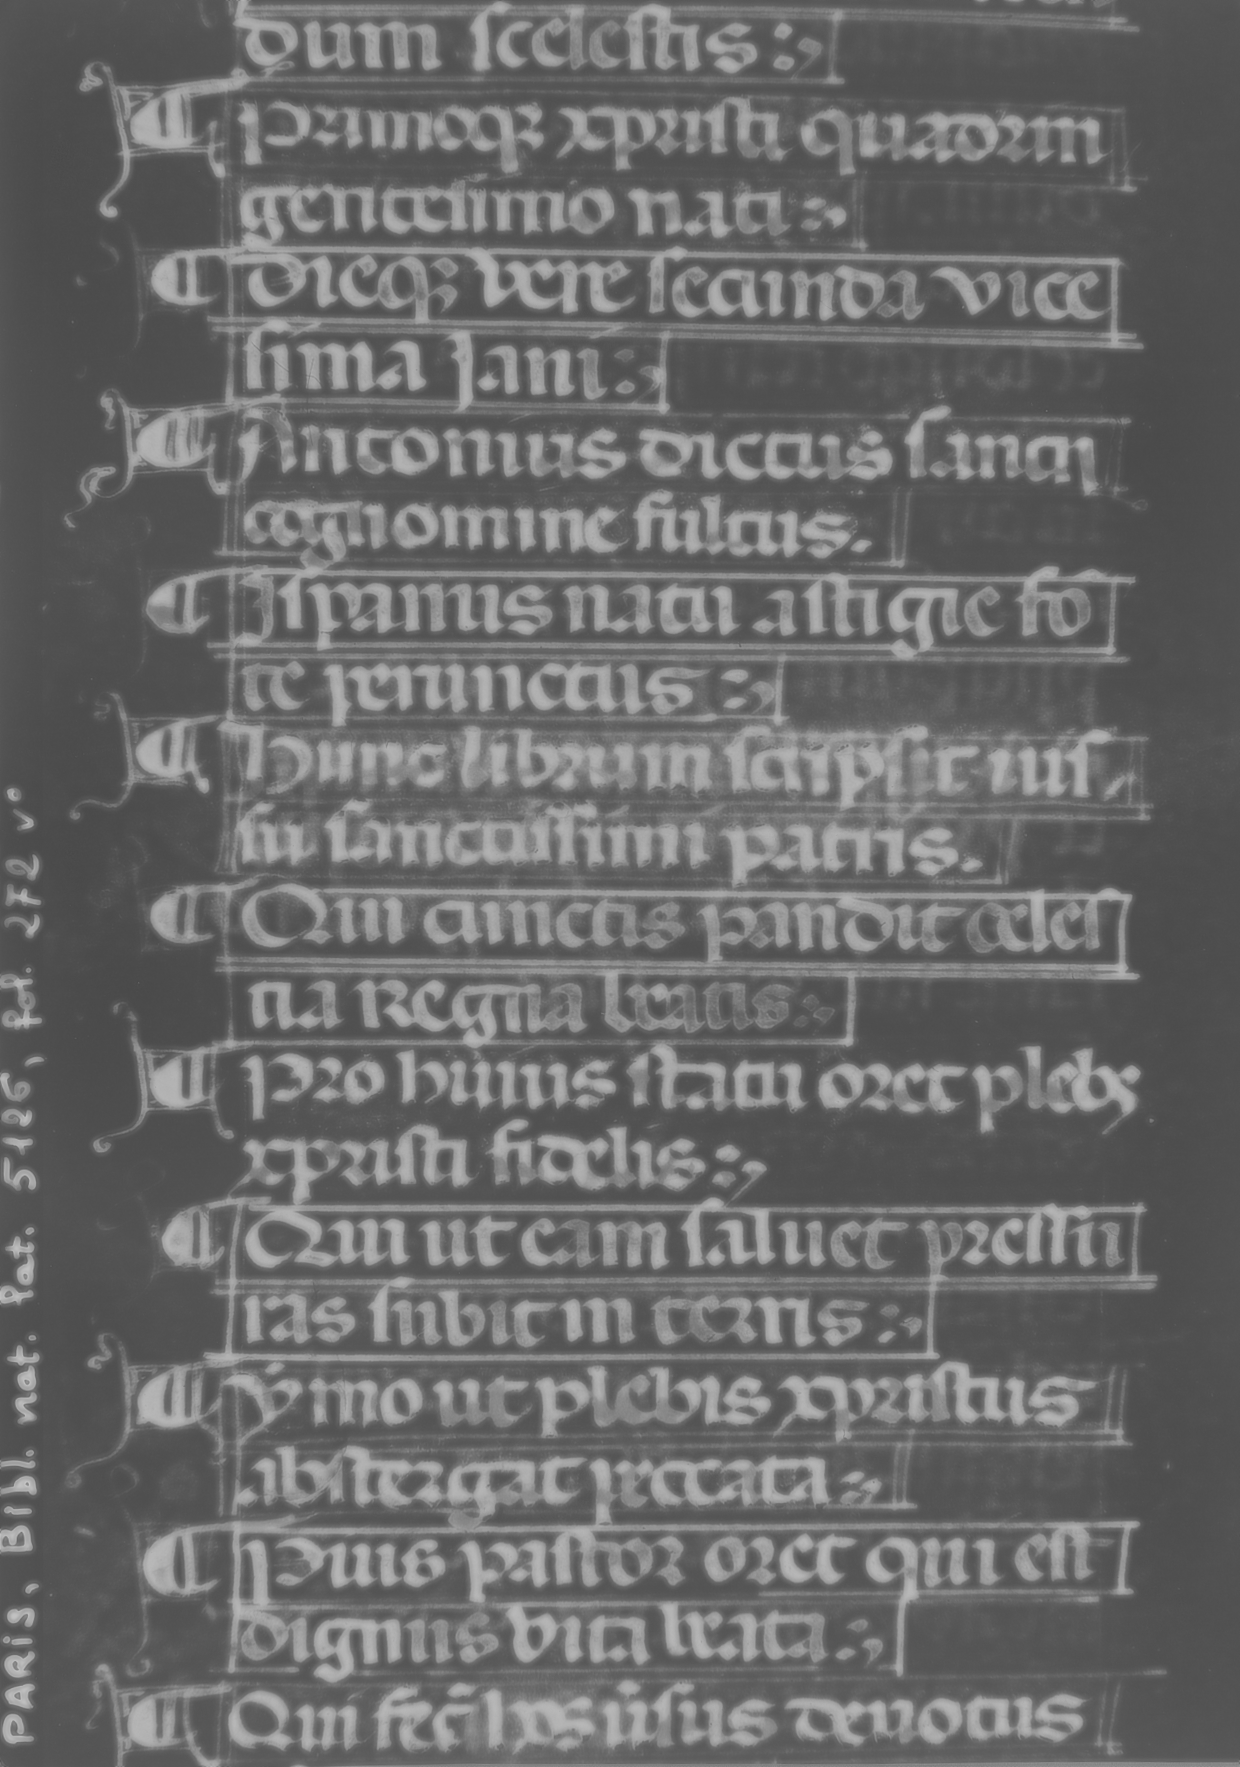 dum scelestis :,
¶ Primoq3 xpristi quadrin
gentesimo nati :,
¶ Dieq3 vere secunda vice
sima Jani :,
¶ Antonius dictus sancti
cognomine fultus.
¶ Jspanus natu astigie fō
te perunctus :,
¶ Hunc librum scripsit ius/
su sanctissimi patris.
¶ Qui cunctis pandit celes
tia Regna beatis :,
¶ Pro huius statu oret plebs
xpristi fidelis :,
¶ Qui ut eam saluet pressu
ras subit in terris :,
¶ Ẏmo ut plebis xpristus
abstergat peccata :,
¶ Pius pastor oret qui est
dignus vita beata :,
¶ Qui fec̄ hos ūsus deuotus
PARIS, Bibl. nat. Lat. 5126, fol. 272 v°